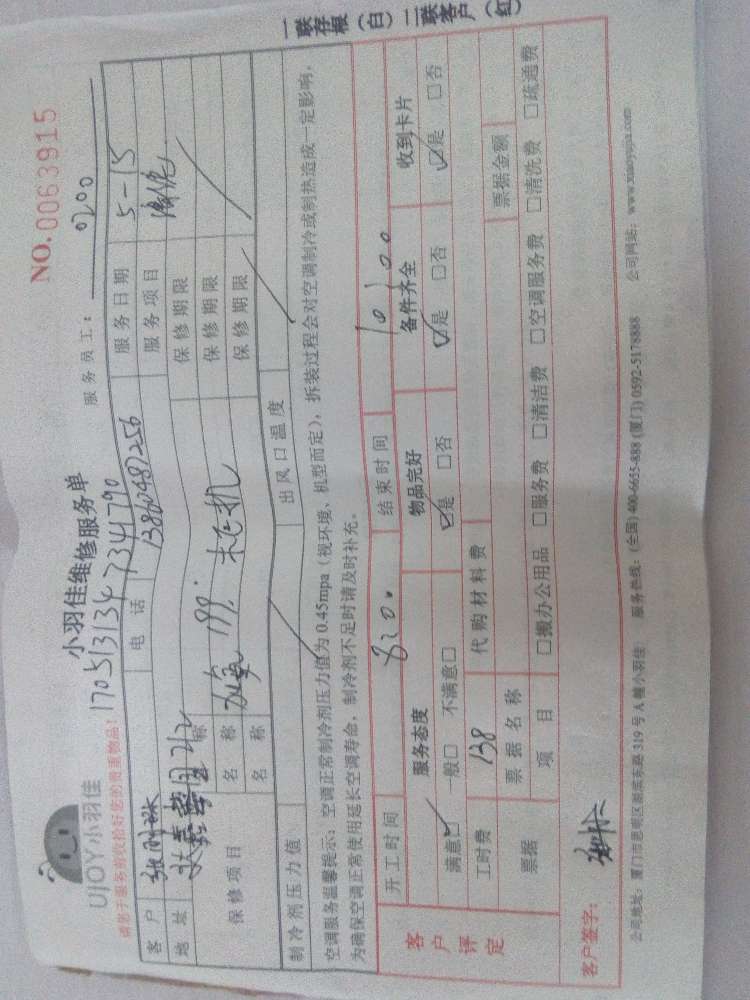 UJOY小羽佳
小羽佳维修服务单
NO.0063915
请您于服务前收拾好您的贵重物品！
17051313473 41790
服务员工： 0200
客户 电话 13860487256 服务日期 5-15
地址 服务项目
保修项目 名称 保修期限
名称 加氟 保修期限
名称 保修期限
制冷剂压力值 出风口温度
空调服务温馨提示：空调正常制冷剂压力值为0.45mpa（视环境、机型而定），拆装过程会对空调制冷或制热造成一定影响，
为确保空调正常使用延长空调寿命，制冷剂不足时请及时补充。
开工时间 8:20. 结束时间 10:00
客户评定 服务态度 物品完好 备件齐全 收到卡片
满意☑ 一般□ 不满意□ ☑是 □否 ☑是 □否 ☑是 □否
工时费 138 代购材料费
票据 票据名称 票据金额
项目 □搬办公用品 □服务费 □清洁费 □空调服务费 □清洗费 □疏通费
客户签字：
公司地址：厦门市思明区湖滨东路319号A幢小羽佳 服务热线：(全国)400-6655-888(厦门)0592-5178888 公司网站：www.xiaoyujia.com
一联存根（白）二联客户（红）